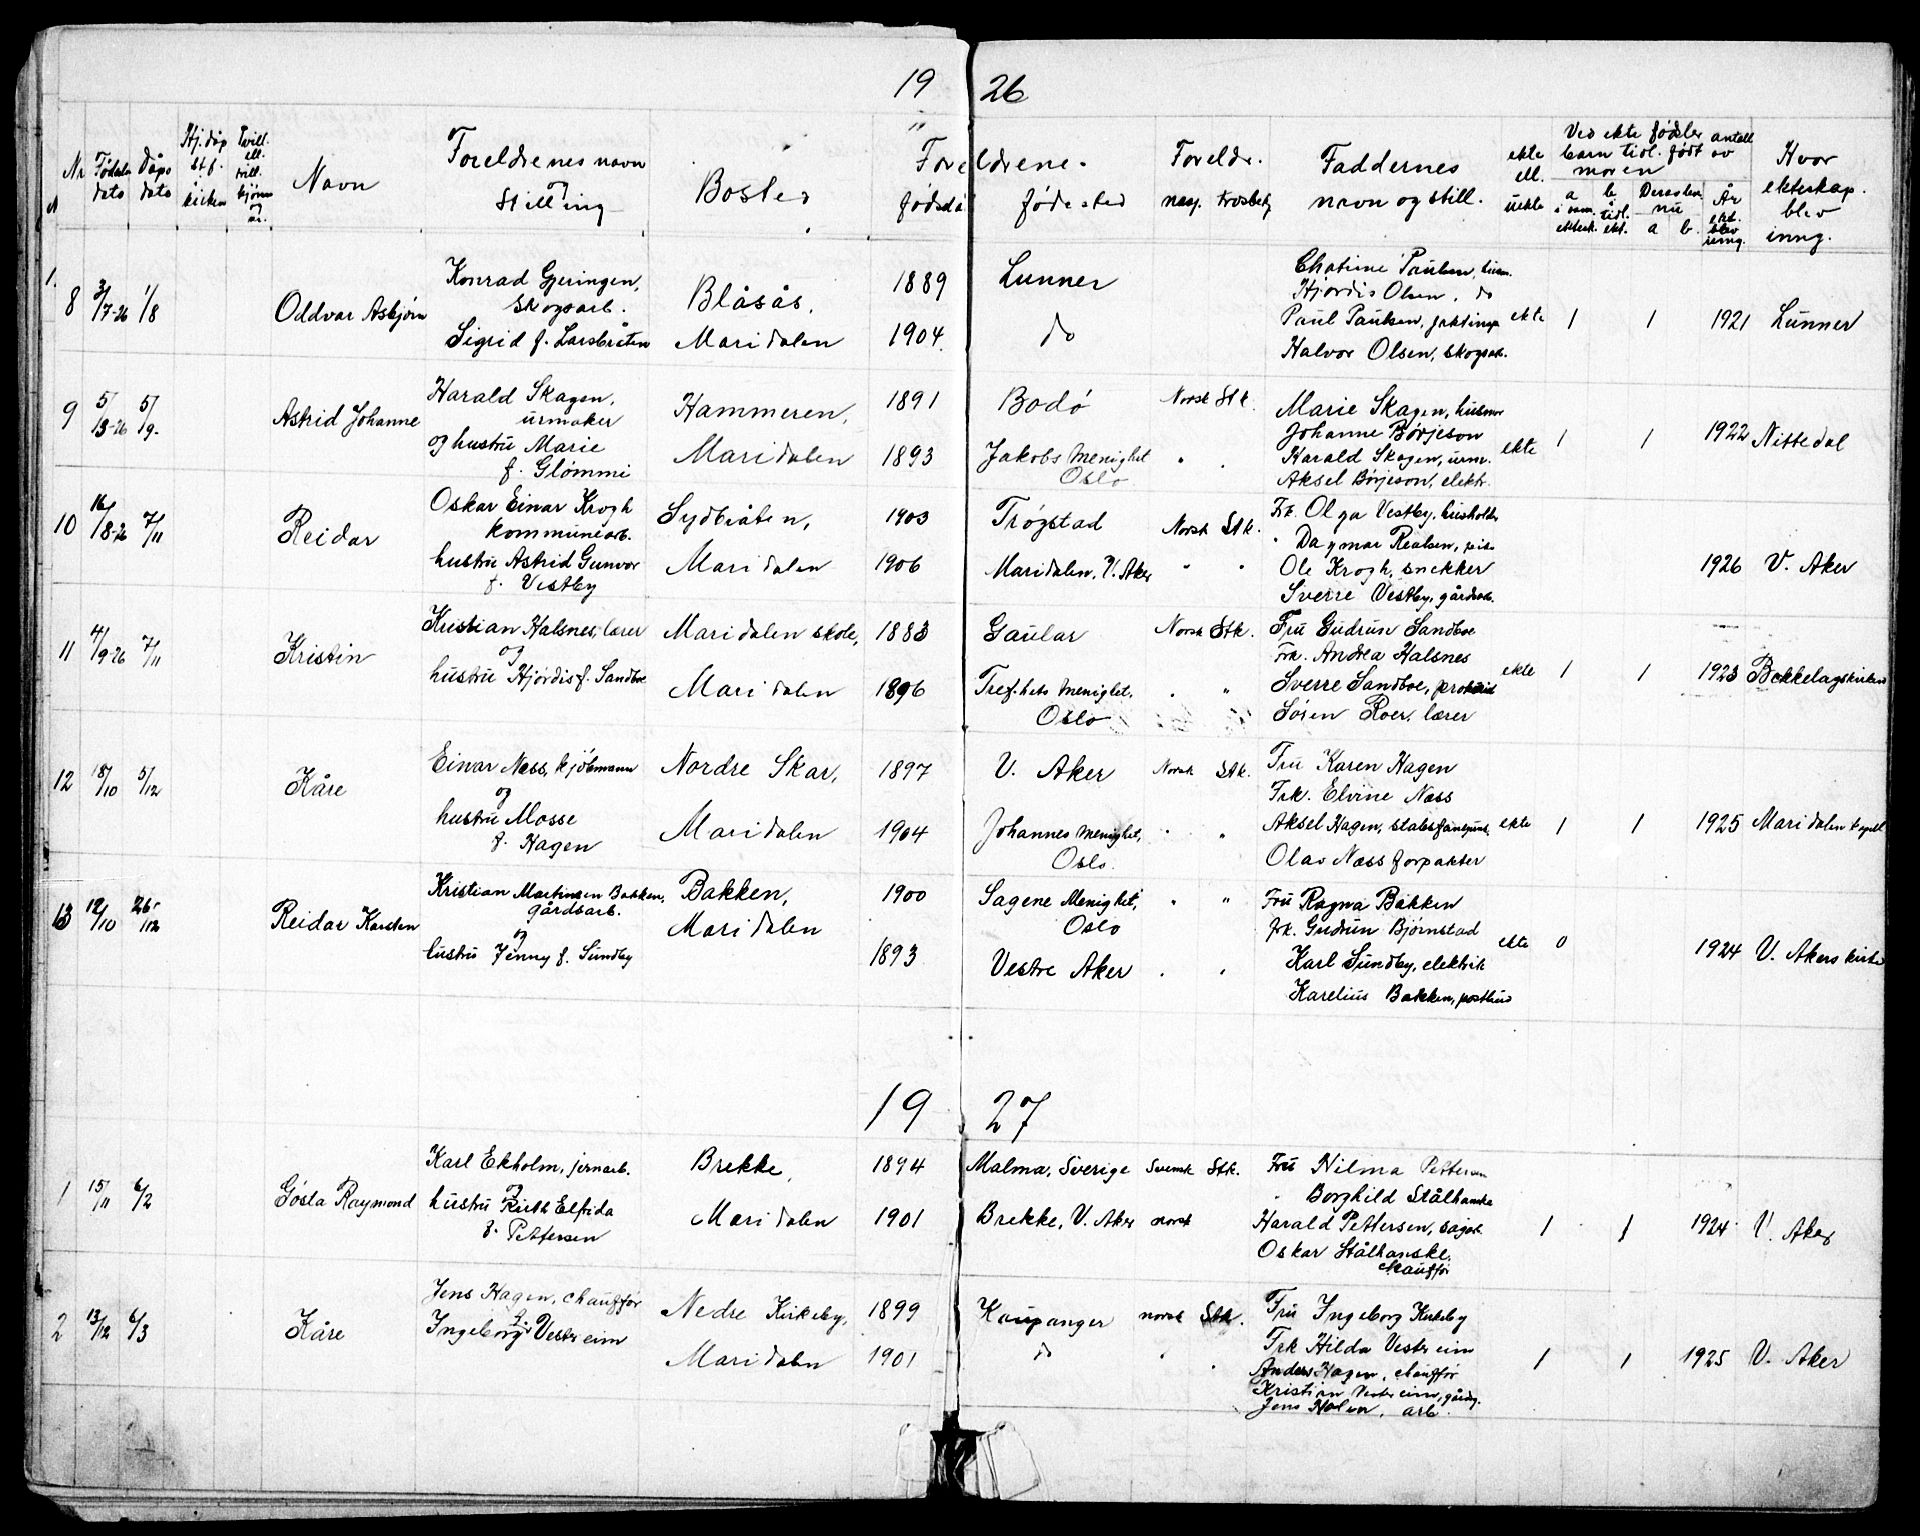 19 26
Nr Føds dato Dåps dato Hj.dåp st.f. i kirken Tvill. ell. trill. kjønn og nr. Navn Foreldrenes navn og stilling Bosted Foreldrenes fødselsår fødested Foreldr. nasj. trosbekj. Faddernes navn og still. ekte ell. uekte Ved ekte fødsler antall barn tidl. født av moren a i sam. ektesk. b tidl. ekt. Derav lever nu a b År ekt. blev inng. Hvor ekteskap. blev inng.
1.
8 3/7-26 1/8 Oddvar Asbjørn Konrad Gjeringen, skogsarb. Blåsås, 1889 Lunner
Sigrid f. Larsbråten Maridalen 1904. do
Paulsen, husm.
Hjørdis Olsen, do
Paul Paulsen, ekte 1 1 1921 Lunner
Halvor Olsen, skogsarb.
9 5/ 13-26 5/9- Astrid Johanne Harald Skagen, urmaker Hammeren, 1891 Bodø Norsk Stk.
og hustru Marie f. Glømmi Maridalen 1893 Jakobs Menighet Oslo " "
Marie Skagen, husmor
Johanne Børjeson
Harald Skagen, urm. ekte 1 1 1922 Nittedal
Aksel Børjeson, elektr.
10 16/8-26 7/11 Reidar Oskar Einar Krogh kommunearb. Sydbråten, 1903 Trøgstad Norsk Stk.
hustru Astrid Gunvor f. Vestby Maridalen 1906 Maridalen, V. Aker " "
Frk. Olga Vestby, husholder
" Dagmar
Ole Krogh, snekker 1926 V. Aker
Sverre Vestby, gårdarb.
11 4/9-26 7/11 Kristin Kristian Halsnes, lærer Maridalen skole, 1883 Gaular Norsk Stk.
og hustru Hjørdis f. Sandboe Maridalen 1896 Tref.hets Menighet, Oslo " "
Fru Gudrun Sandboe
Frk. Andrea Halsnes
Sverre Sandboe, ekte 1 1 1923 Bekkelagskirken
Søren Roer, lærer
12 18/10 5/12 Kåre Einar Næss, kjøbmann Nordre Skar, 1897 V. Aker Norsk Stk.
og hustru Mosse f. Hagen Maridalen 1904 Johannes Menighet, Oslo. " "
Fru Karen Hagen
Frk. Elvine Næss
Aksel Hagen, ekte 1 1 1925 Maridalen kapell
Olav Næss forpakter
13 12/10 26/12 Reidar Karsten Kristian Martinsen Bakken, gårdsarb. Bakken, 1900 Sagene Menighet, Oslo " "
og hustru Jenny f. Sundby Maridalen 1893 Vestre Aker " "
Fru Ragna Bakken
frk. Gudrun Bjørnstad
Karl Sundby, elektrik ekte 0 1924 V. Akers kirke
Karelius Bakken, postbud
19 27
1 15/11 6/2 Gösta Raymond Karl Ekholm, jernarb. Brekke, 1894 Malmø, Sverige Svensk Stk.
og hustru Ruth Elfrida f. Pettersen Maridalen 1901 Brekke, V. Aker norsk
Fru Nilma Pettersen
" Borghild Stålhanske
Harald Pettersen, sagarb. 1 1 1924 V. Aker
Oskar Stålhanske, chauffør
2 13/12 6/3 Kåre Jens Hagen, chauffør Nedre Kirkeby, 1899 Kaupanger norsk Stk.
Ingeborg f. Vestreim Maridalen 1901 do " "
Fru Ingeborg Kirkeby
Frk Hilda Vestreim
Anders Hagen, chauffør 1 1 1925 V. Aker
Kristian Vestreim, gårdg.
Jens Holen, arb.